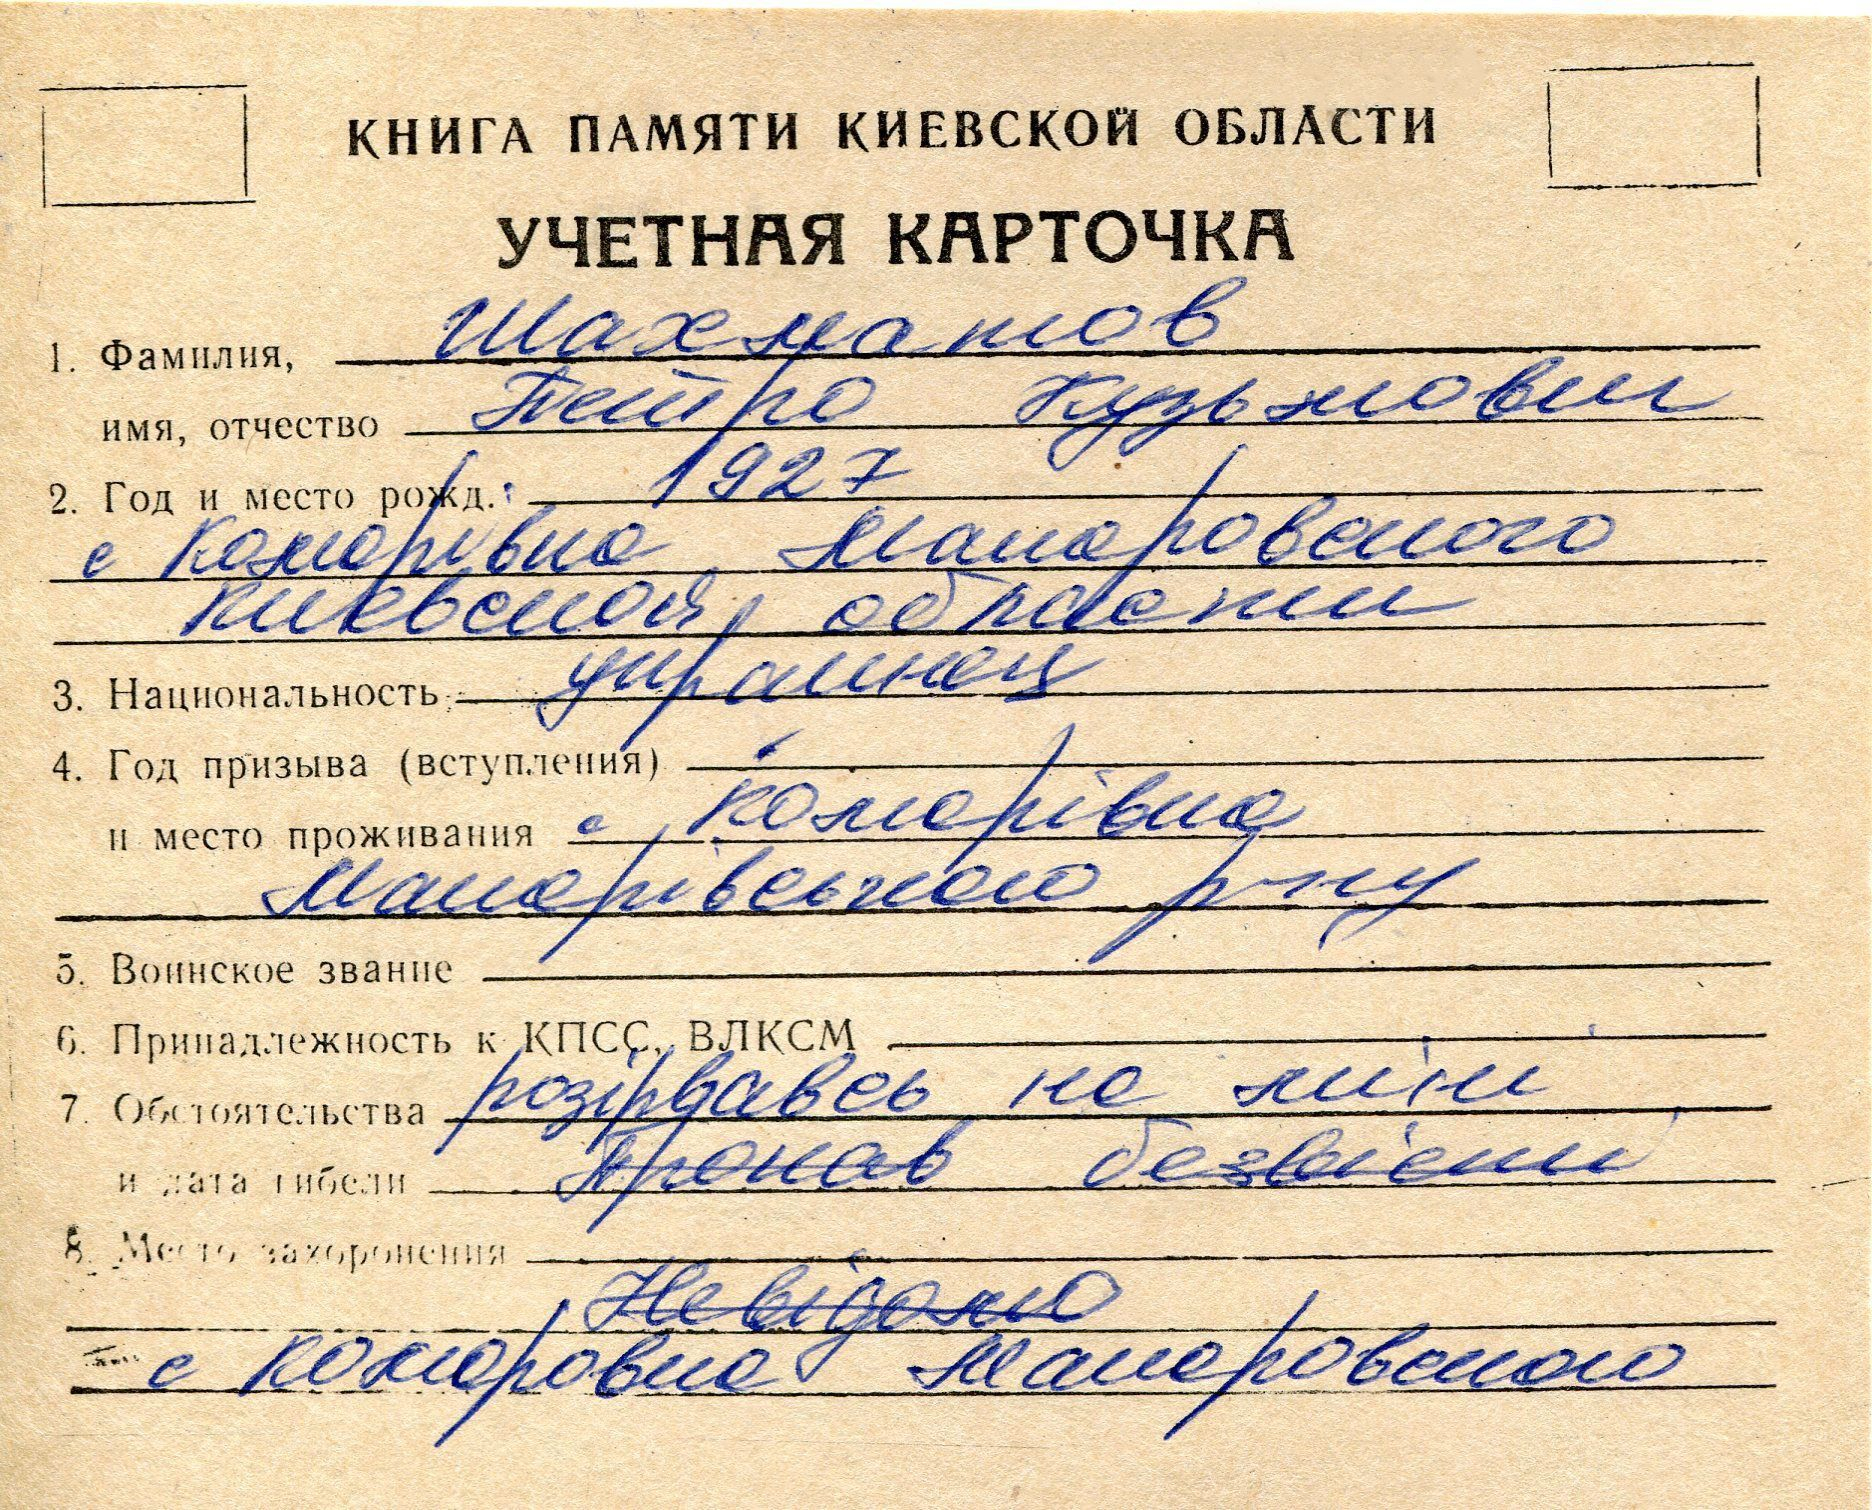 КНИГА ПАМЯТИ КИЕВСКОЙ ОБЛАСТИ
УЧЕТНАЯ КАРТОЧКА
1. Фамилия, Шахматов
имя, отчество Петро Кузьмович
2. Год и место рожд.: 1927
с Комарівка Макаровского
Киевской области
3. Национальность украинец
4. Год призыва (вступления)
и место проживания с Комарівка
Макарівського р-ну
5. Воинское звание
6. Принадлежность к КПСС, ВЛКСМ
7. Обстоятельства розірвавсь на міні
и дата гибели Пропав безвісти
8. Место захоронения
Невідомо
с Комаровка Макаровского